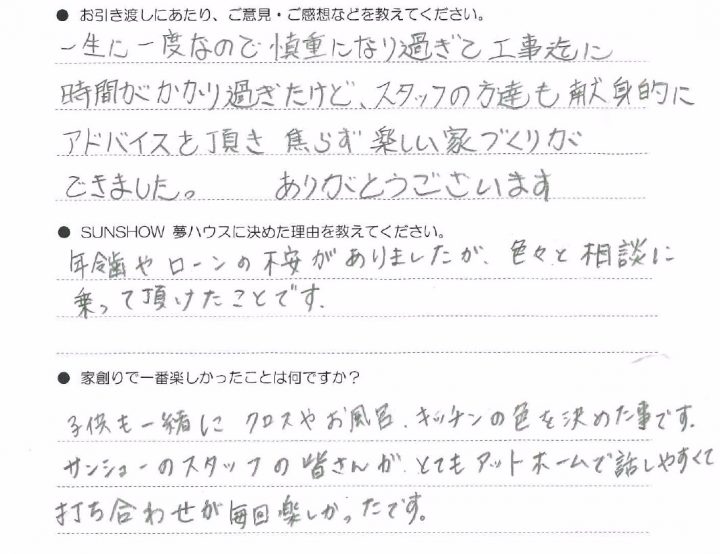 ● お引き渡しにあたり、ご意見・ご感想などを教えてください。
一生に一度なので慎重になり過ぎて工事迄に
時間がかかり過ぎたけど、スタッフの方達も献身的に
アドバイスを頂き 焦らず楽しい家づくりが
できました。 ありがとうございます
● SUNSHOW 夢ハウスに決めた理由を教えてください。
年齢やローンの不安がありましたが、色々と相談に
乗って頂けたことです.
● 家創りで一番楽しかったことは何ですか？
子供も一緒に クロスやお風呂、キッチンの色を決めた事です.
サンショーのスタッフの皆さんが、とてもアットホームで話しやすくて
打ち合わせが毎回楽しかったです。